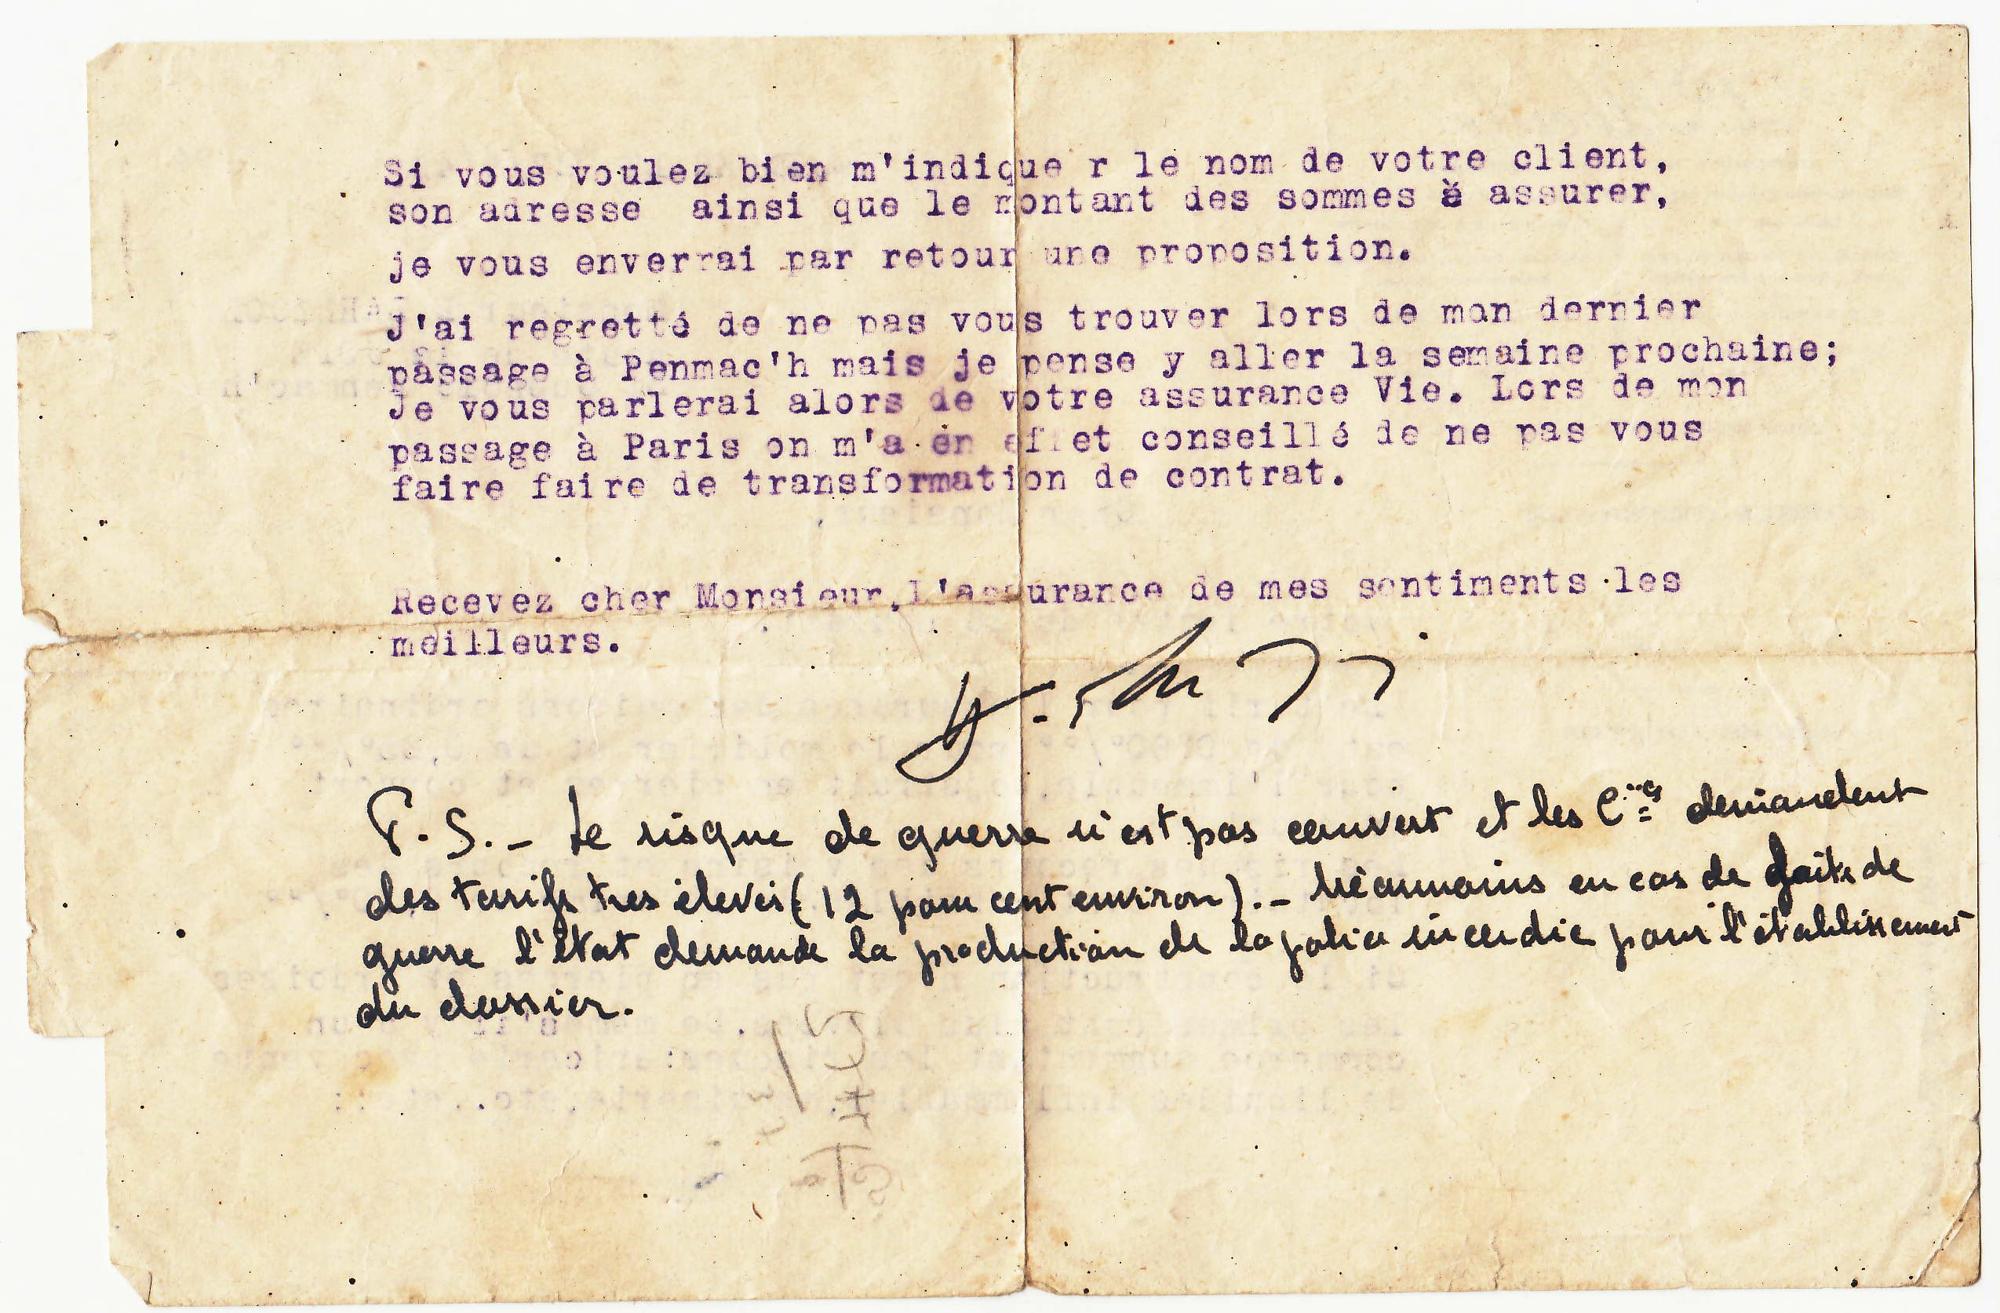 Si vous voulez bien m'indique r le nom de votre client,
son adresse ainsi que le montant des sommes à assurer,
je vous enverrai par retour une proposition.
J'ai regretté de ne pas vous trouver lors de mon dernier
passage à Penmac'h mais je pense y aller la semaine prochaine;
Je vous parlerai alors de votre assurance Vie. Lors de mon
passage à Paris on m'a en effet conseillé de ne pas vous
faire faire de transformation de contrat.
Recevez cher Monsieur,l'assurance de mes sentiments les
meilleurs.
P.S.- Le risque de guerre n'est pas couvert et les Cies demandent
des tarifs très élevés (12 pour cent environ).- Néanmoins en cas de faits de
guerre l'état demande la production de la police incendie pour l'établissement
du dossier.